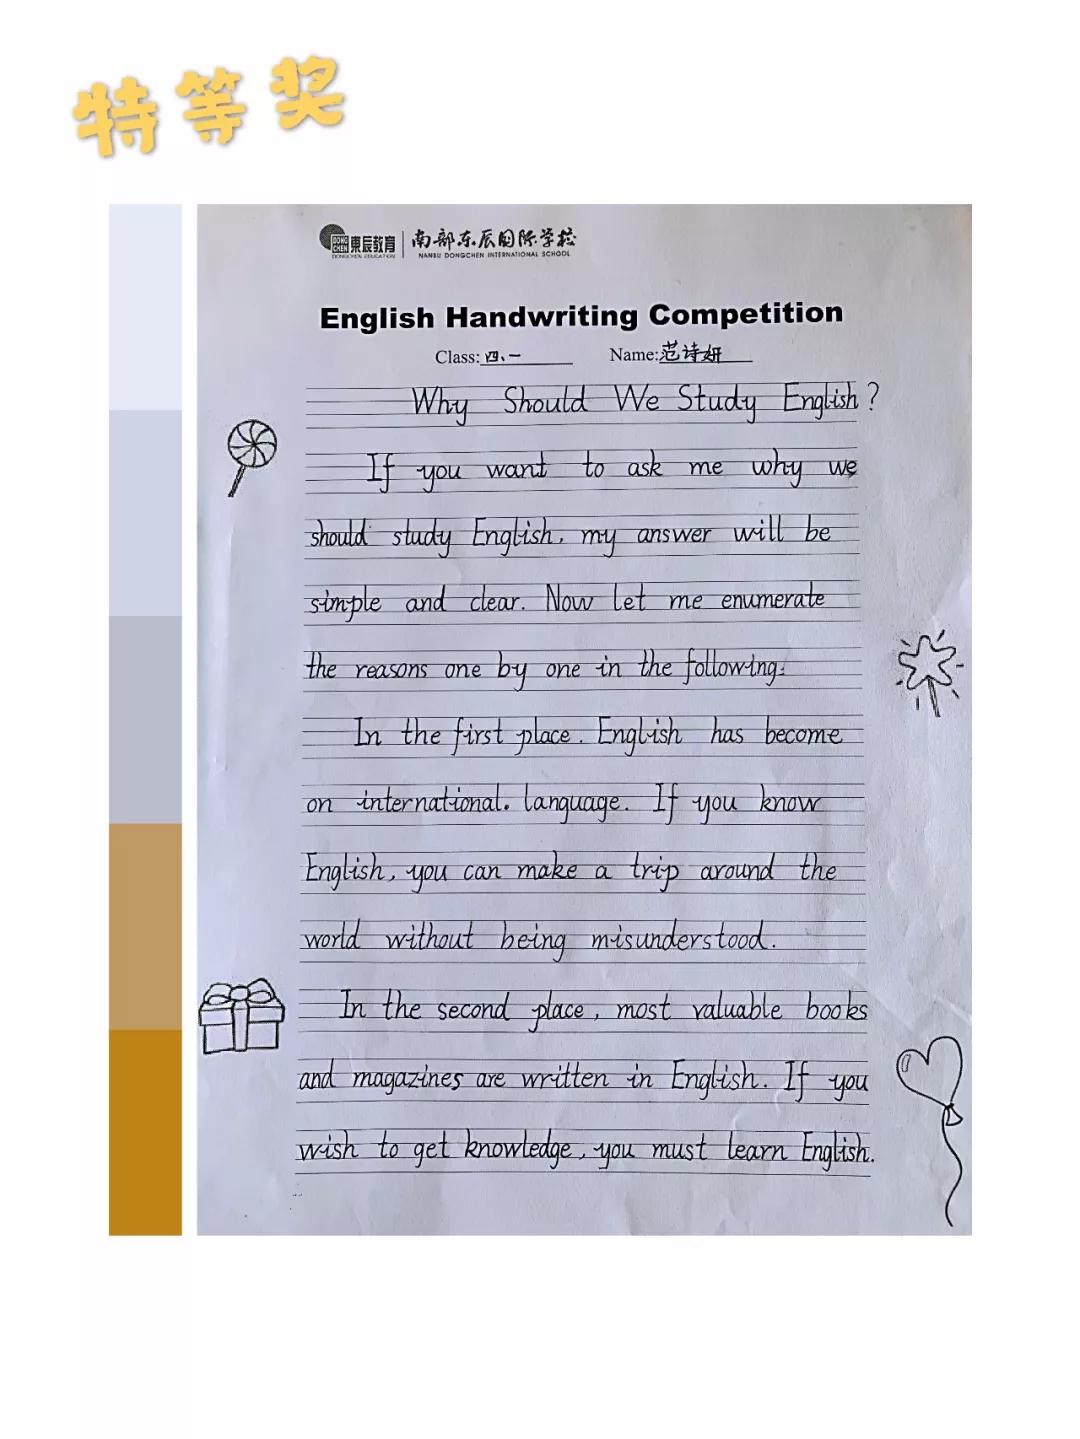 特等奖
DONG CHEN 東辰教育 南部东辰国际学校
DONGCHEN EDUCATION NANBU DONGCHEN INTERNATIONAL SCHOOL
English Handwriting Competition
Class: 四、一 Name: 范诗妍
Why Should We Study English?
If you want to ask me why we
should study English, my answer will be
simple and clear. Now let me enumerate
the reasons one by one in the following:
In the first place. English has become
on international. language. If you know
English, you can make a trip around the
world without being misunderstood.
In the second place, most valuable books
and magazines are written in English. If you
wish to get knowledge, you must learn English.